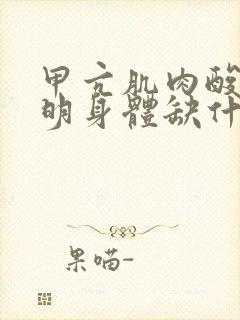 甲亢肌肉酸
明身體缺什
果喵-